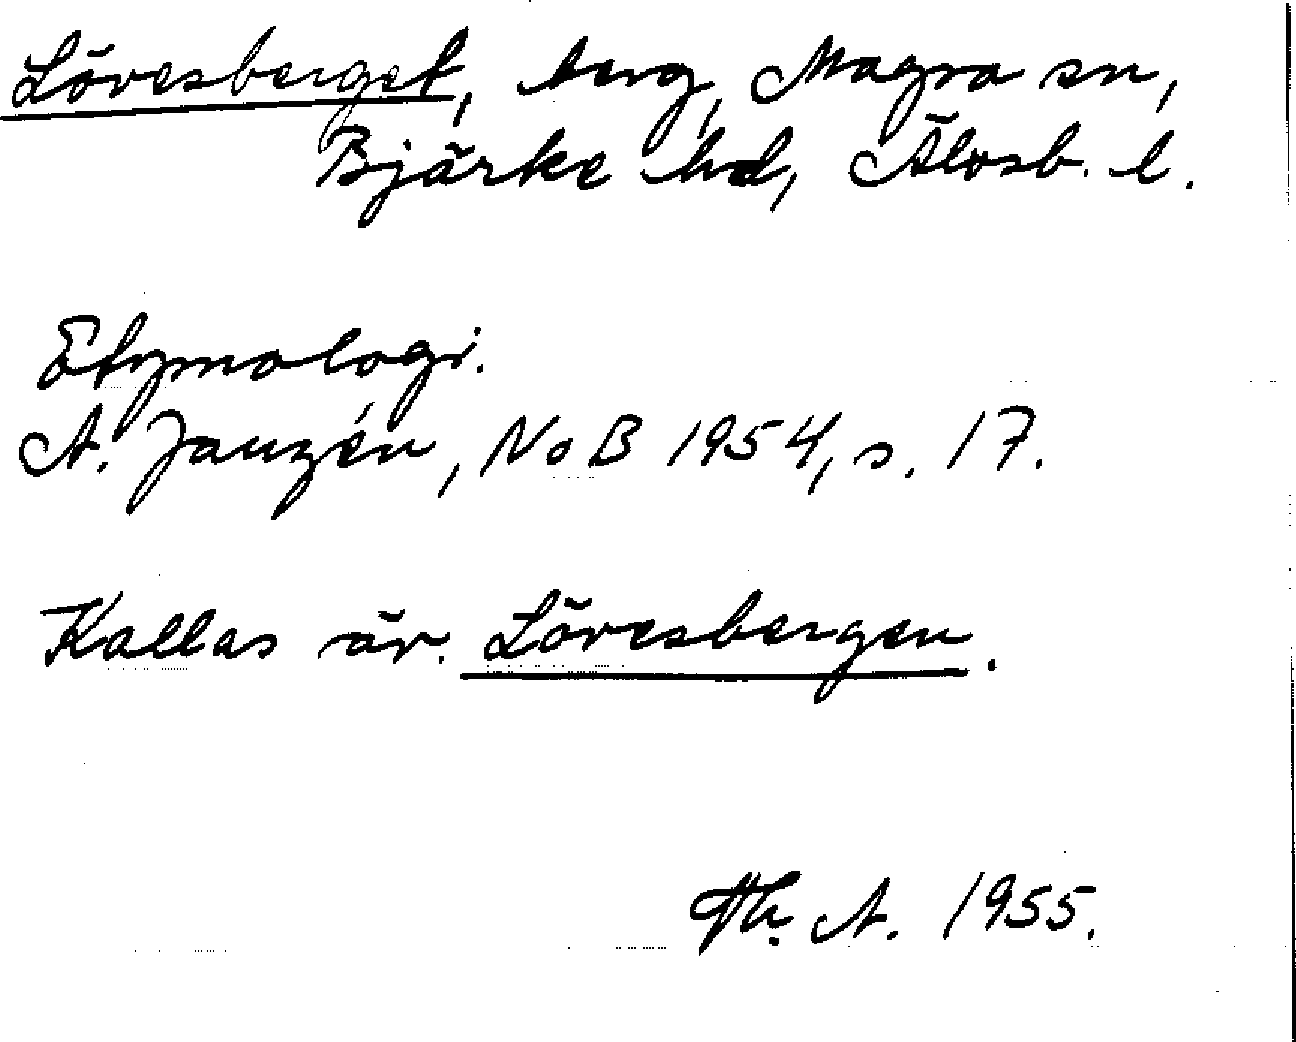 Lövesberget, berg, Magra sn,
Bjärke hd, Älvsb. l.
Etymologi.
A. Janzén, NoB 1954, s. 17.
Kallas äv. Lövesbergen.
Th. A. 1955.